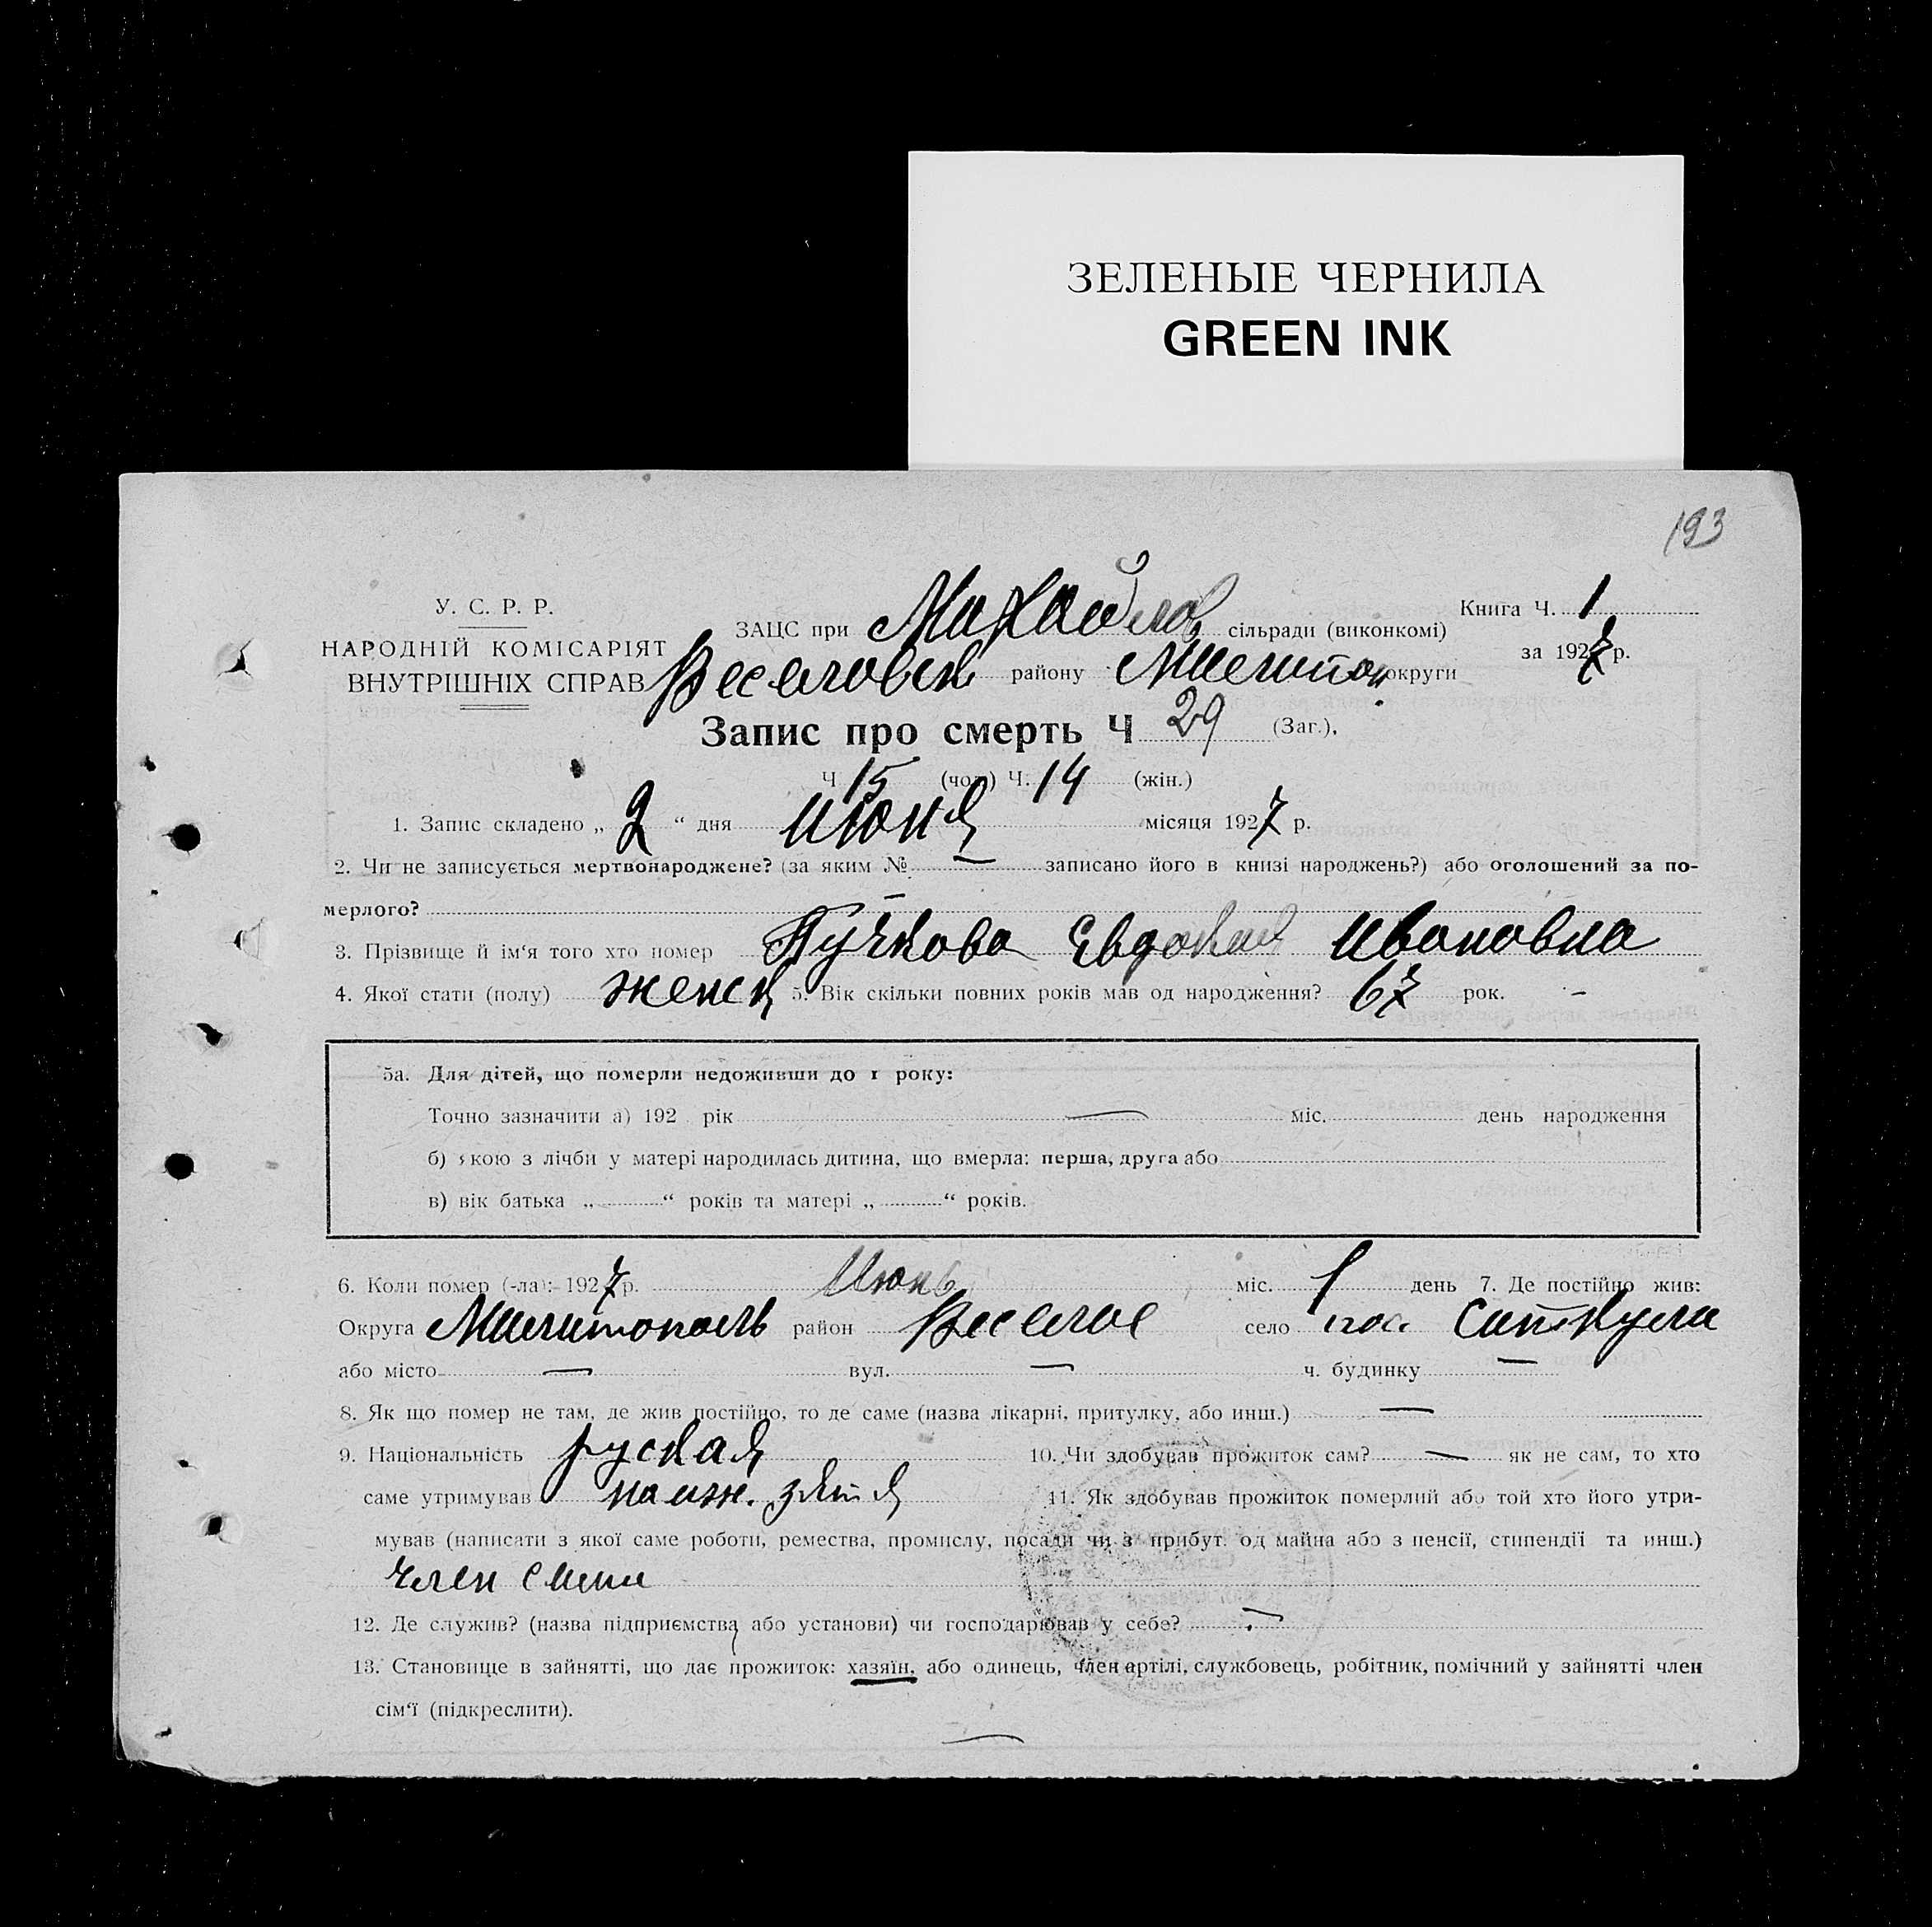 ЗЕЛЕНЫЕ ЧЕРНИЛА
GREEN INK
193
У. С. Р. Р.
НАРОДНІЙ КОМІСАРІЯТ
ВНУТРІШНІХ СПРАВ
ЗАЦС при Михайлов сільради (виконкомі)
Веселовск району Мелитоп. округи
Книга Ч. 1
за 1927 р.
Запис про смерть Ч 29 (Заг.),
Ч 15 (чол) Ч. 14 (жін.)
1. Запис складено „ 2 “ дня июня місяця 1927 р.
2. Чи не записується мертвонароджене? (за яким № — записано його в книзі народжень?) або оголошений за по-
мерлого? —
3. Прізвище й ім‘я того хто помер Пучкова Евдокия Ивановна
4. Якої стати (полу) женск 5. Вік скільки повних років мав од народження? 67 рок. —
5а. Для дітей, що померли недоживши до 1 року:
Точно зазначити а) 192 рік — міс. день народження
б) якою з лічби у матері народилась дитина, що вмерла: перша, друга або
в) вік батька „ “ років та матері „ “ років.
6. Коли помер (-ла): 1927 р. Июнь міс. 1 день 7. Де постійно жив:
Округа Мелитополь район Веселое село пос.
або місто — вул. — ч. будинку —
8. Як що помер не там, де жив постійно, то де саме (назва лікарні, притулку, або инш.) —
9. Національність руская 10. Чи здобував прожиток сам? — як не сам, то хто
саме утримував на иж. зятя 11. Як здобував прожиток померлий або той хто його утри-
мував (написати з якої саме роботи, ремества, промислу, посади чи з прибут. од майна або з пенсії, стипендії та инш.)
член семи
12. Де служив? (назва підприємства або установи) чи господарював у себе? —
13. Становище в зайнятті, що дає прожиток: хазяїн, або одинець, член артілі, службовець, робітник, помічний у зайнятті член
сім‘ї (підкреслити).